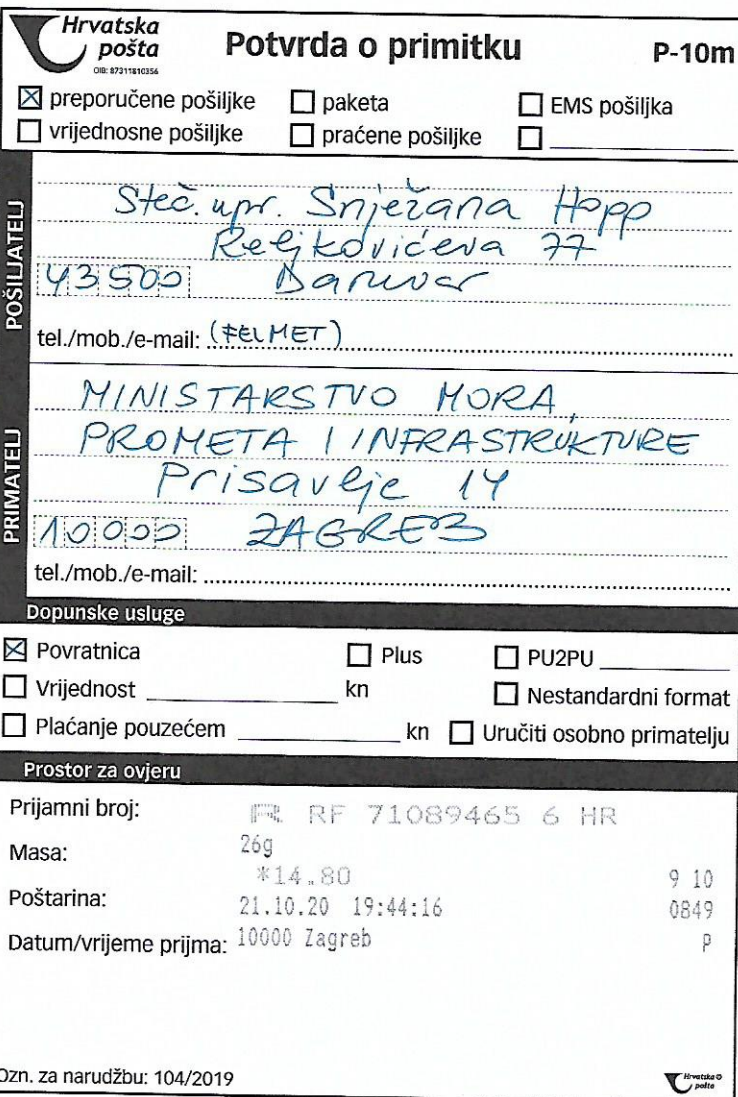 Hrvatska pošta
OIB: 87311810356
Potvrda o primitku
P-10m
☒ preporučene pošiljke ☐ paketa ☐ EMS pošiljka
☐ vrijednosne pošiljke ☐ praćene pošiljke ☐
POŠILJATELJ
Steč. upr. Snježana Hopp
Reljkovićeva 77
43500 Daruvar
tel./mob./e-mail: (FELMET)
PRIMATELJ
MINISTARSTVO MORA,
PROMETA I INFRASTRUKTURE
Prisavlje 14
10000 ZAGREB
tel./mob./e-mail:
Dopunske usluge
☒ Povratnica ☐ Plus ☐ PU2PU
☐ Vrijednost kn ☐ Nestandardni format
☐ Plaćanje pouzećem kn ☐ Uručiti osobno primatelju
Prostor za ovjeru
Prijamni broj: R RF 71089465 6 HR
Masa: 26g
*14.80 9 10
Poštarina: 21.10.20 19:44:16 0849
Datum/vrijeme prijma: 10000 Zagreb P
Ozn. za narudžbu: 104/2019
Hrvatska pošta